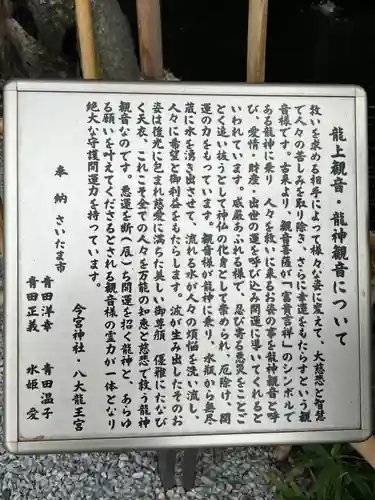 龍上観音・龍神観音について
救いを求める相手によって様々な姿に変えて、大慈悲と智慧
で人々の苦しみを取り除き、さらに幸運をもたらすという観
音様です。古来より、観音菩薩が「富貴吉祥」のシンボルで
ある龍神に乗り 人々を救いに来るお姿の事を龍神観音と呼
び、愛情・財産・出世の運を呼び込み開運に導いてくれると
いわれています。威厳あふれる様で、忍び寄る悪災をことご
とく追い祓うとして神仏の化身として崇められ、厄除け、開
運の力をもっています。観音様が龍神に乗り、水瓶から無尽
蔵に水を湧き出させて、流れる水が人々の煩悩を洗い流し、
人々に希望と御利益をもたらします。波が生み出したそのお
姿は後光に包まれ慈愛に満ちた美しい御尊顔 優雅にたなび
く天衣、これこそ全ての人々を万能の知恵と慈悲で救う龍神
観音なのです。悪運を断(辰)ち開運を招く龍神と、あらゆ
る願いを叶えてくださるとされる観音様の霊力が一体となり
絶大な守護開運力を持っています。
今宮神社・八大龍王宮
奉 納 さいたま市
青田洋幸 青田温子
青田正義 水姫 愛